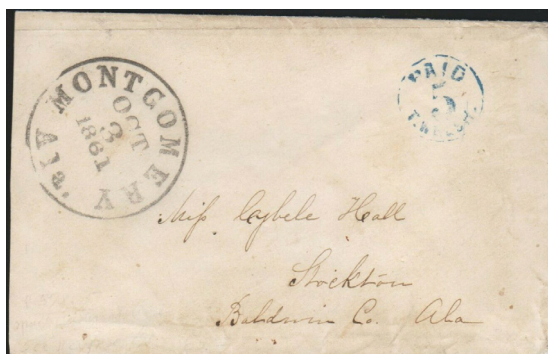 MONTGOMERY Ala.
OCT
3
1861
PAID
5
T. WELSH.
Miss Cybele Hall
Stockton
Baldwin Co. Ala